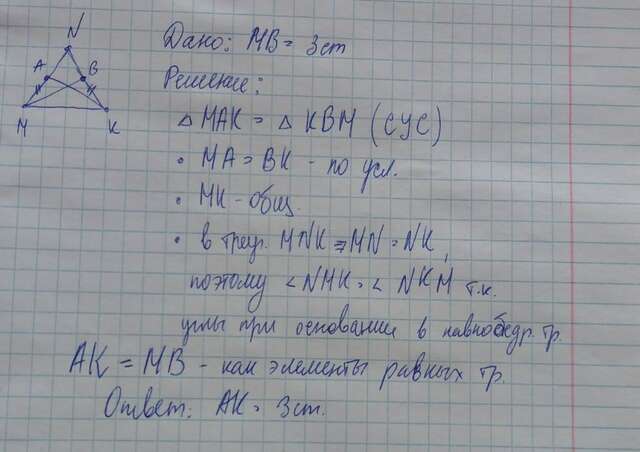 N
A B
M K
Дано: MB = 3 cm
Решение:
△ MAK = △ KBM (СУС)
• MA = BK - по усл.
• MK - общ.
• в треуг. MNK ⇒ MN = NK,
поэтому ∠NMK = ∠NKM т.к.
углы при основании в равнобедр. тр.
AK = MB - как элементы равных тр.
Ответ: AK = 3 cm.